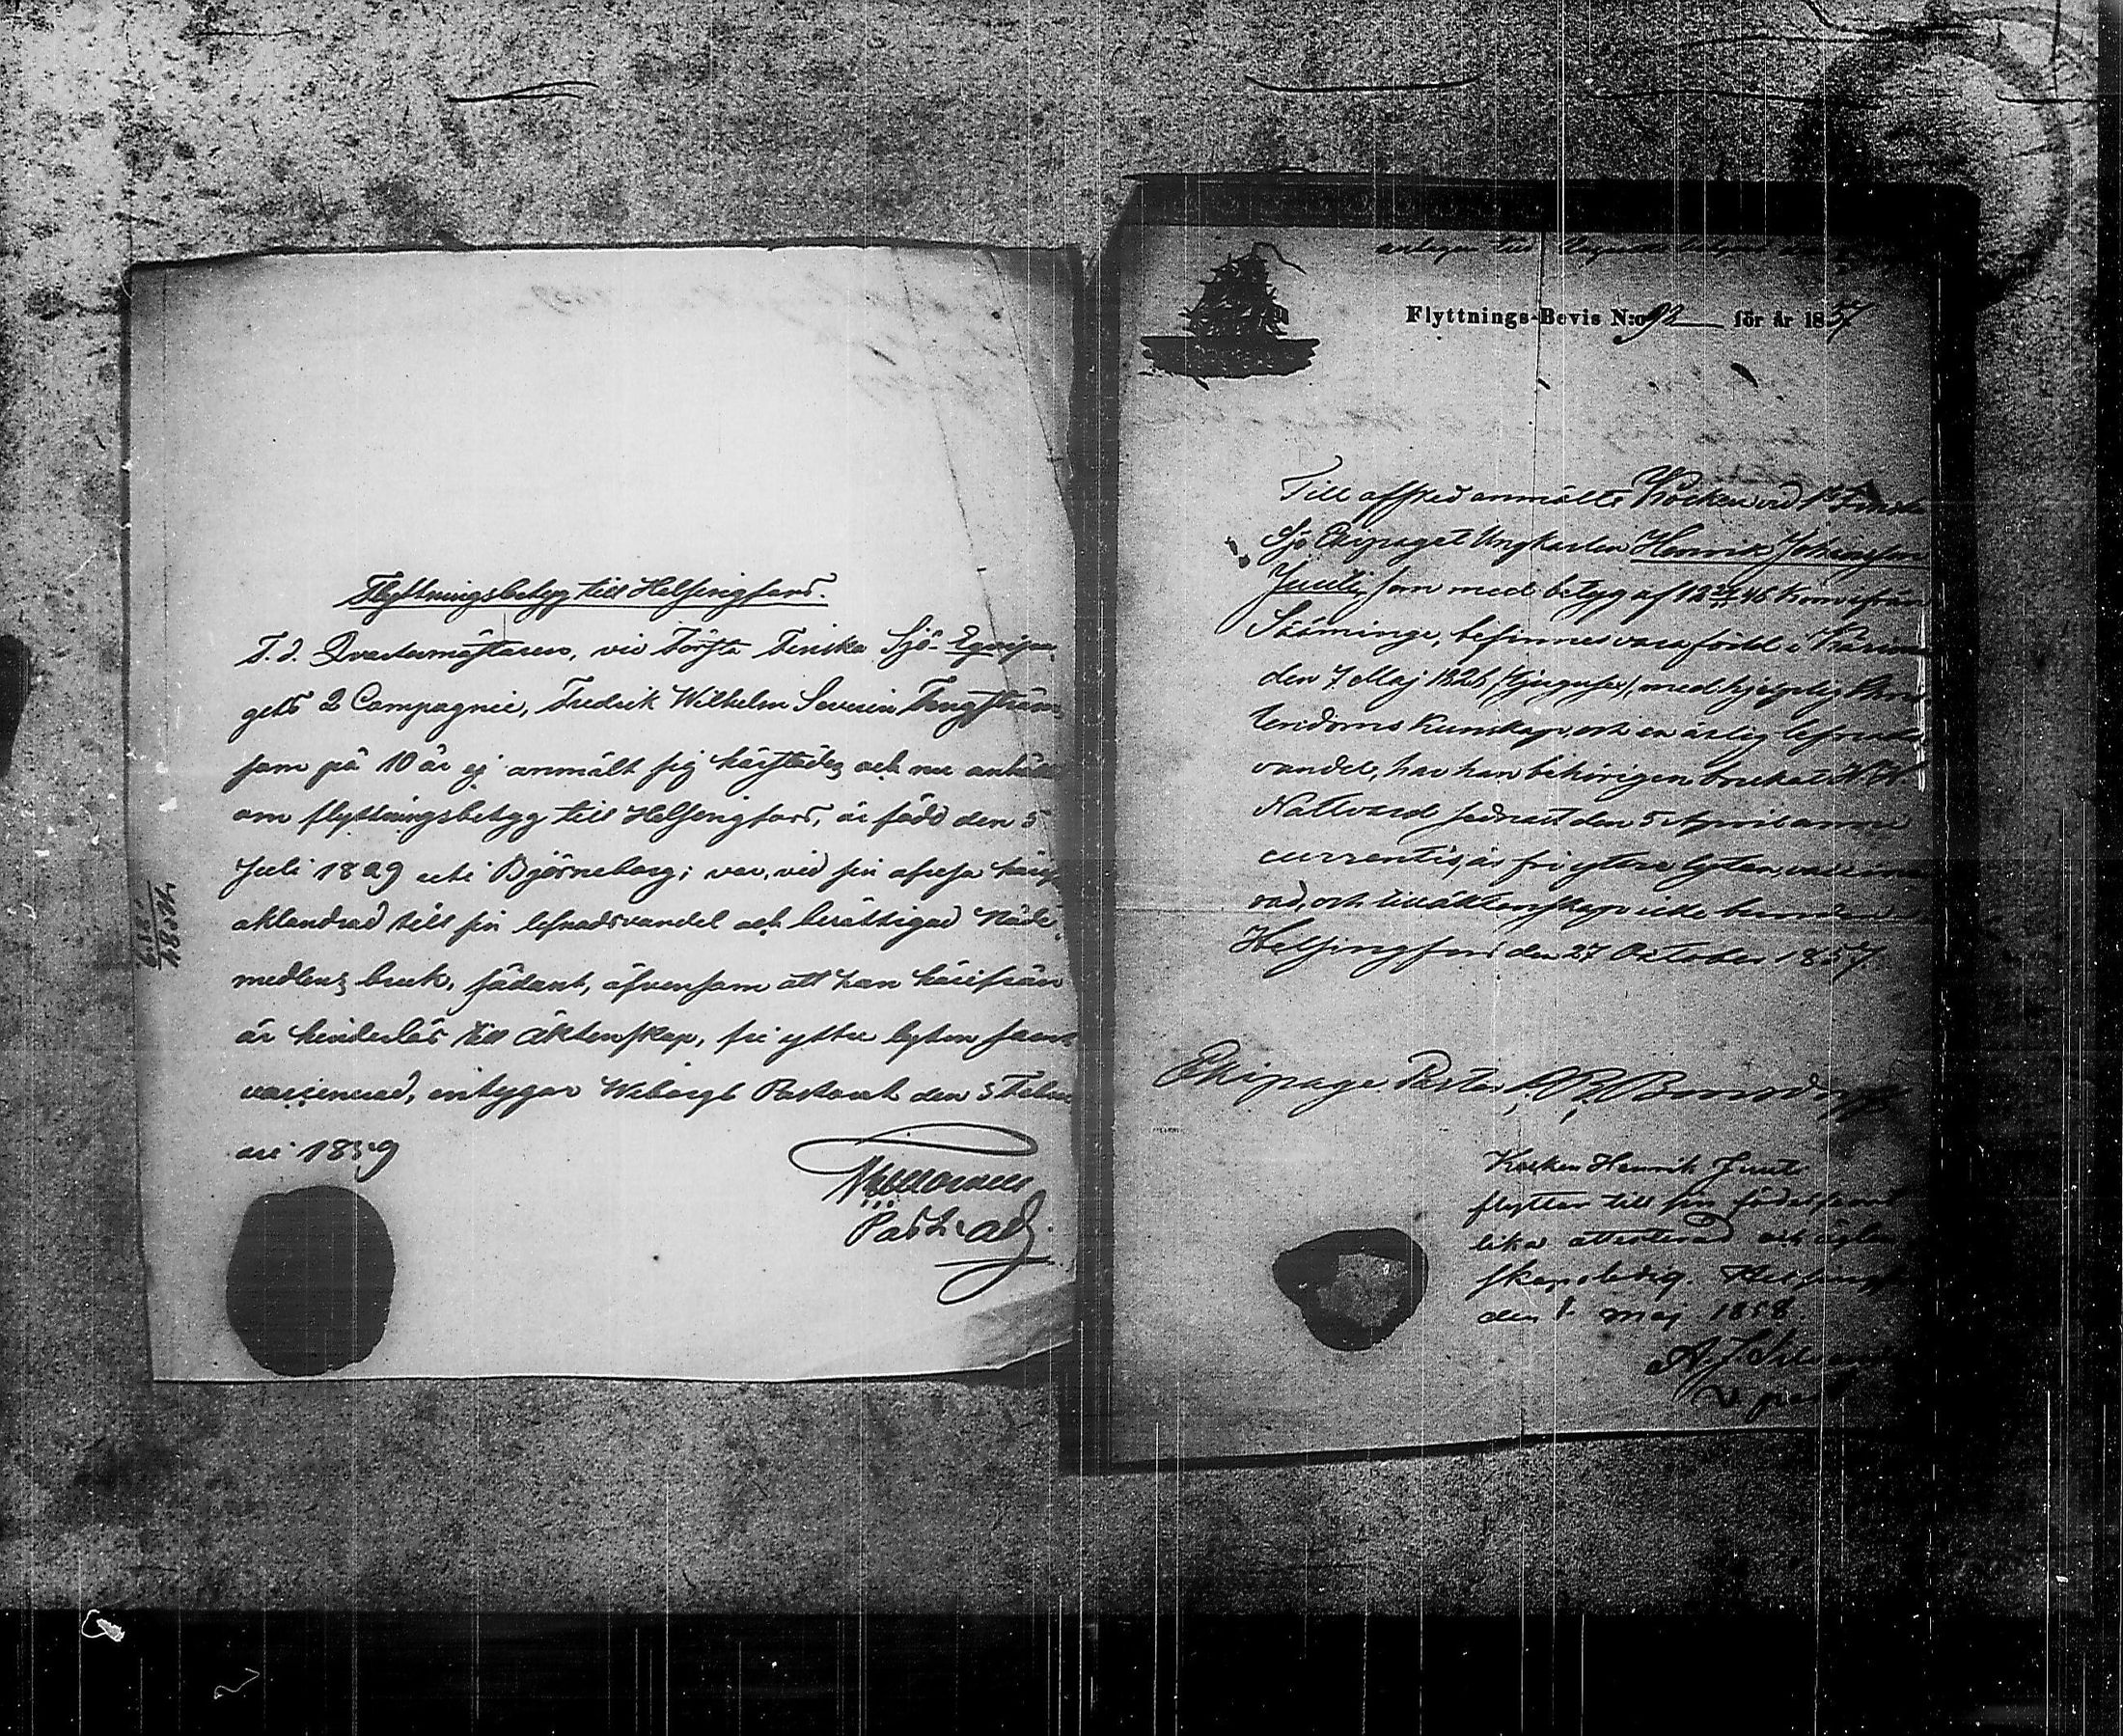 Flyttningsbetyg till Helsingfors.
F. d. Qvartermästaren, vid Första Finska Sjö-Equipa-
gets 2 Compagnie, Fredrik Wilhelm Severin Tengström
som på 10 år ej anmält sig härstädes och nu anhållit
om flyttningsbetyg till Helsingfors, är född den 5
Juli 1829 uti Björneborg; var, vid sin afresa härif
oklandrad till sin lefnadsvandel och berättigad Nåde-
medlens bruk, sådant, äfvensom att han härifrån
är hinderlös till äktenskap, fri yttre lyten samt
vaccinerad, intygar Wiborgs Pastorat den 3 Febru
ari 1859
Past. adj.
Flyttnings-Bevis N:o 92 för år 1857.
Till afsked anmälte Kocken vid 1 Finska
Sjö Ekipaget Ungkarlen Henrik Johansson
Juuti, som med betyg af 18 46 kom från
Sääminge, befinnes vara född i
den 7 Maj 1826, med hjelplig Chris
tendoms kunskap och en ärlig lefnads
vandel, har han behörigen brukat H. H.
Nattvard sednast den 5 April anni
currentis, är fri yttre lyten, vaccine
rad, och till äktenskap icke bunden
Helsingfors den 27 October 1857.
Ekipage Pastor Bonsdorff
Kocken Henrik Juuti
flyttar till sin födelseort
lika attesterad och ägten
skapsledig. Helsingf
den 1 maj 1858.
A. J.
v. past